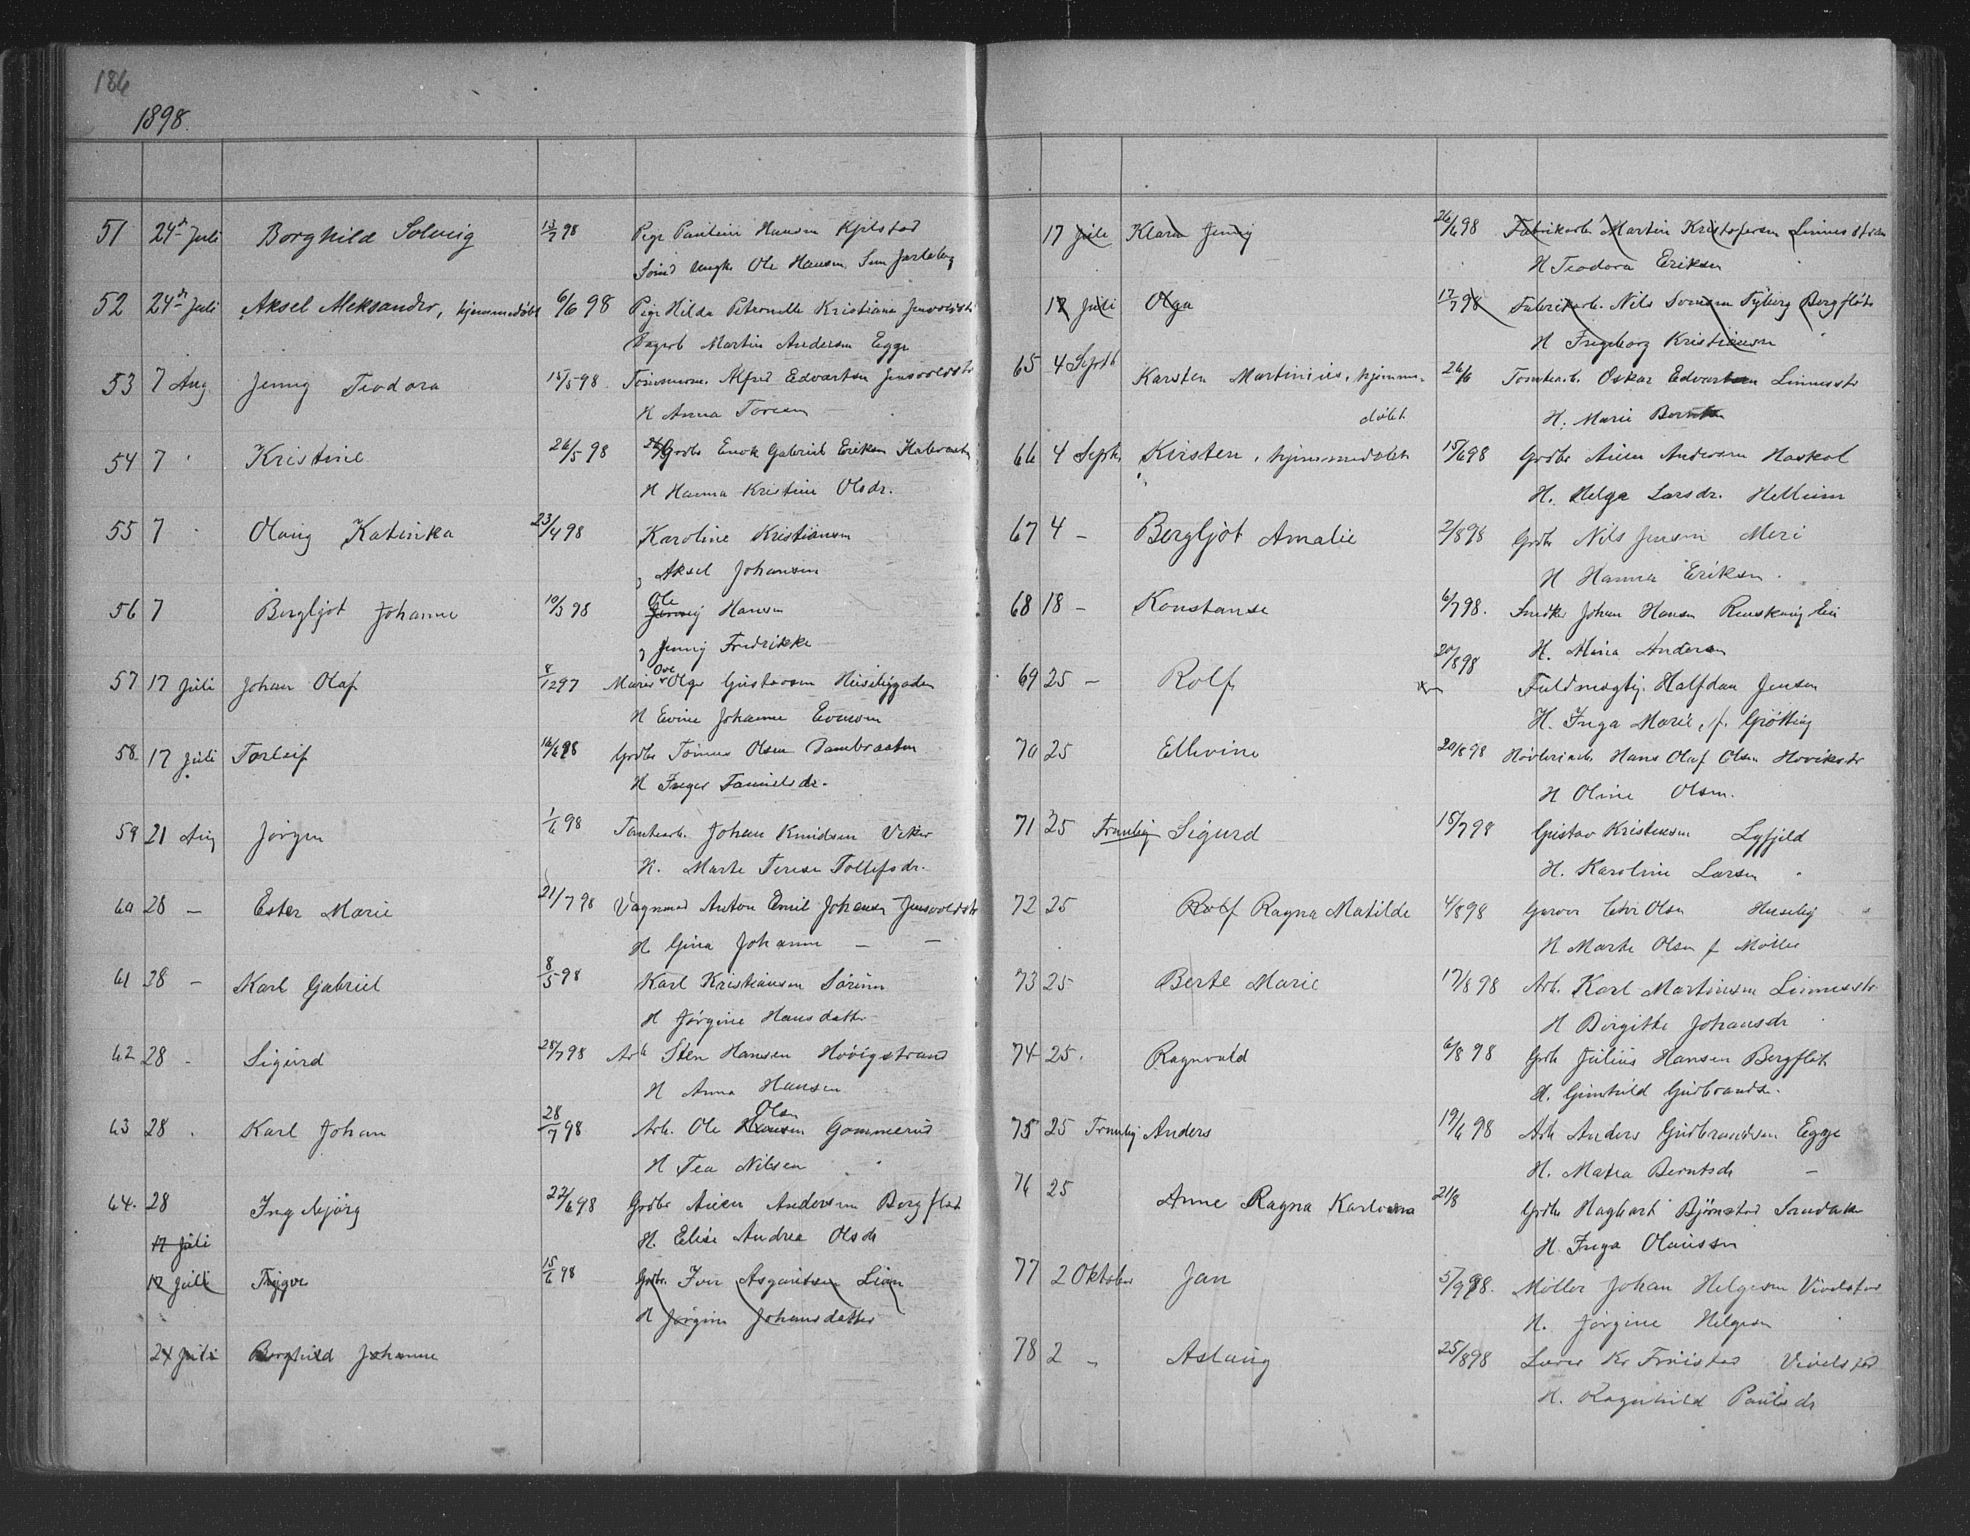 186
1898.
51 24de Juli Borghild Solveig 13/7 98 Pige Pauline Hansen Kjilstad
Ole Hansen, Sem Jarlsberg
52 24de Juli Aksel Aleksander, hjemmedøbt 6/6 98 Pige Hilda Petronelle Kristiane
Martin Andersen Egge
53 7 Aug. Jenny Teodora 15/5 98. Alfred Edvartsen
H Anna
54 7 " Kristine 26/5 98 Grdbr Enok Gabriel Eriksen
H Hanna Kristine Olsdr.
55 7 " Olaug Katinka 23/4 98 Karoline Kristiansen
, Aksel Johansen
56 7 Bergljot Johanne 10/3 98 Ole Hansen
, Jenny Fredrikke
57 17 Juli Johan Olaf 8/12 97 Gustavsen
H Evine Johanne
58. 17 Juli Torleif 16/6 98 Grdbr Olsen
H Inger
59 21 Aug Jørgen 1/6 98 Tomtearb. Johan Knudsen Viker
H. Marte Terese Tollefsdr.
60 28 — Ester Marie 21/7 98 Vognmand Anton Emil Johansen
H Gina Johanne — —
61 28 — Karl Gabriel 8/5 98 Karl Kristiansen
H Jørgine Hansdatter
62 28 - Sigurd 28/7 98 Arb Sten Hansen Høvigstrand
H Anna Hansen
63 28 . Karl Johan 28/7 98 Arb. Ole Hansen Olsen Gommerud
H Tea Nilsen "
64. 28 Ingebjørg 22/6 98 Grdbr Andersen Bergflot
17 Juli H. Elise Andrea Olsdr
17 Juli Trygve 15/6 98 Grdbr. Iver Asgautsen Lian
H Jørgine Johansdatter
24 Juli Borghild Johanne
17 Juli Klara Jenny 26/6 98 Fabrikarb. Martin Kristofersen Linnesstran
H Teodora Eriksen
17 Juli Olga 17/7 98 Fabrikarb. Nils Svensen Bergflot
H Ingeborg Kristiansen
65 4 Septb Karsten Martinius, hjemme- 26/6 Tomtearb. Oskar Edvartsen Linnesstr
døbt H. Marie
66 4 Septb. Kirsten, hjemmedøbt 15/6 98 Grdbr Andersen
H. Helga Larsdr. Hellum
67 4 — Bergljot Amalie 2/8 98 Grdbr Nils Jensen Meri
H Hanna Eriksen.
68 18 — Konstanse 6/7 98. Snedker Johan Hansen
H. Mina Andersen
69 25 — Rolf 20/8 98 Fuldmægtig. Halfdan Jensen
H. Inga Marie, f. Grøtting
70 25 Ellevine 20/8 98 Høvleriarb. Hans Olaf Olsen Høvikstr
H Oline Olsen.
71 25 Sigurd 15/7 98 Gustav Kristensen Lyfjeld
H. Karoline Larsen "
72 25 Rolf Ragna Matilde 4/8 98 Garver Chr Olsen Huseby
H Marte Olsen f Møller
73 25 Berte Marie 17/8 98 Arb. Karl Martinsen Linnesstr
H Birgitte Johansdr
74 25. Ragnvald 6/8 98 Grdb Julius Hansen Bergflot
H. Gunhild Gudbrandsd.
75 25 Anders 19/6 98 Arb Anders Gudbrandsen Egge
H. Matea Berntsdr —
76 25 Anne Ragna Karlovna 21/8 Grdbr Hagbart Bjørnstad Sandaker
H. Inga Olaussen
77 2 Oktober Jan 5/9 98. Møller Johan Helgesen Vivelstad
H. Jørgine Helgesen
78 2 " Aslaug 25/8 98 Lærer Kr Vivelstad
H. Ragnhild Paulsdr